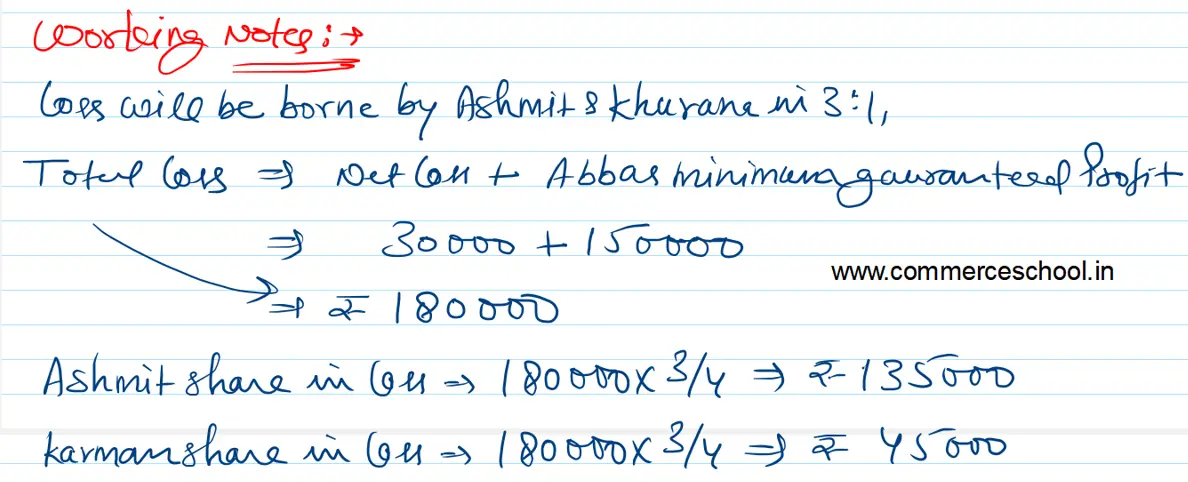 Working Notes:→
Loss will be borne by Ashmit & Khurane in 3:1,
Total Loss ⇒ Net Loss + Abbas minimum gauranteed Profit
⇒ 30000 + 150000
www.commerceschool.in
⇒ ₹ 180000
Ashmit share in Loss ⇒ 180000 x 3/4 ⇒ ₹ 135000
karman share in Loss ⇒ 180000 x 3/4 ⇒ ₹ 45000